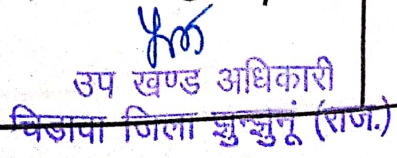 उप खण्ड अधिकारी
चिडावा जिला झुन्झुनूं (राज.)